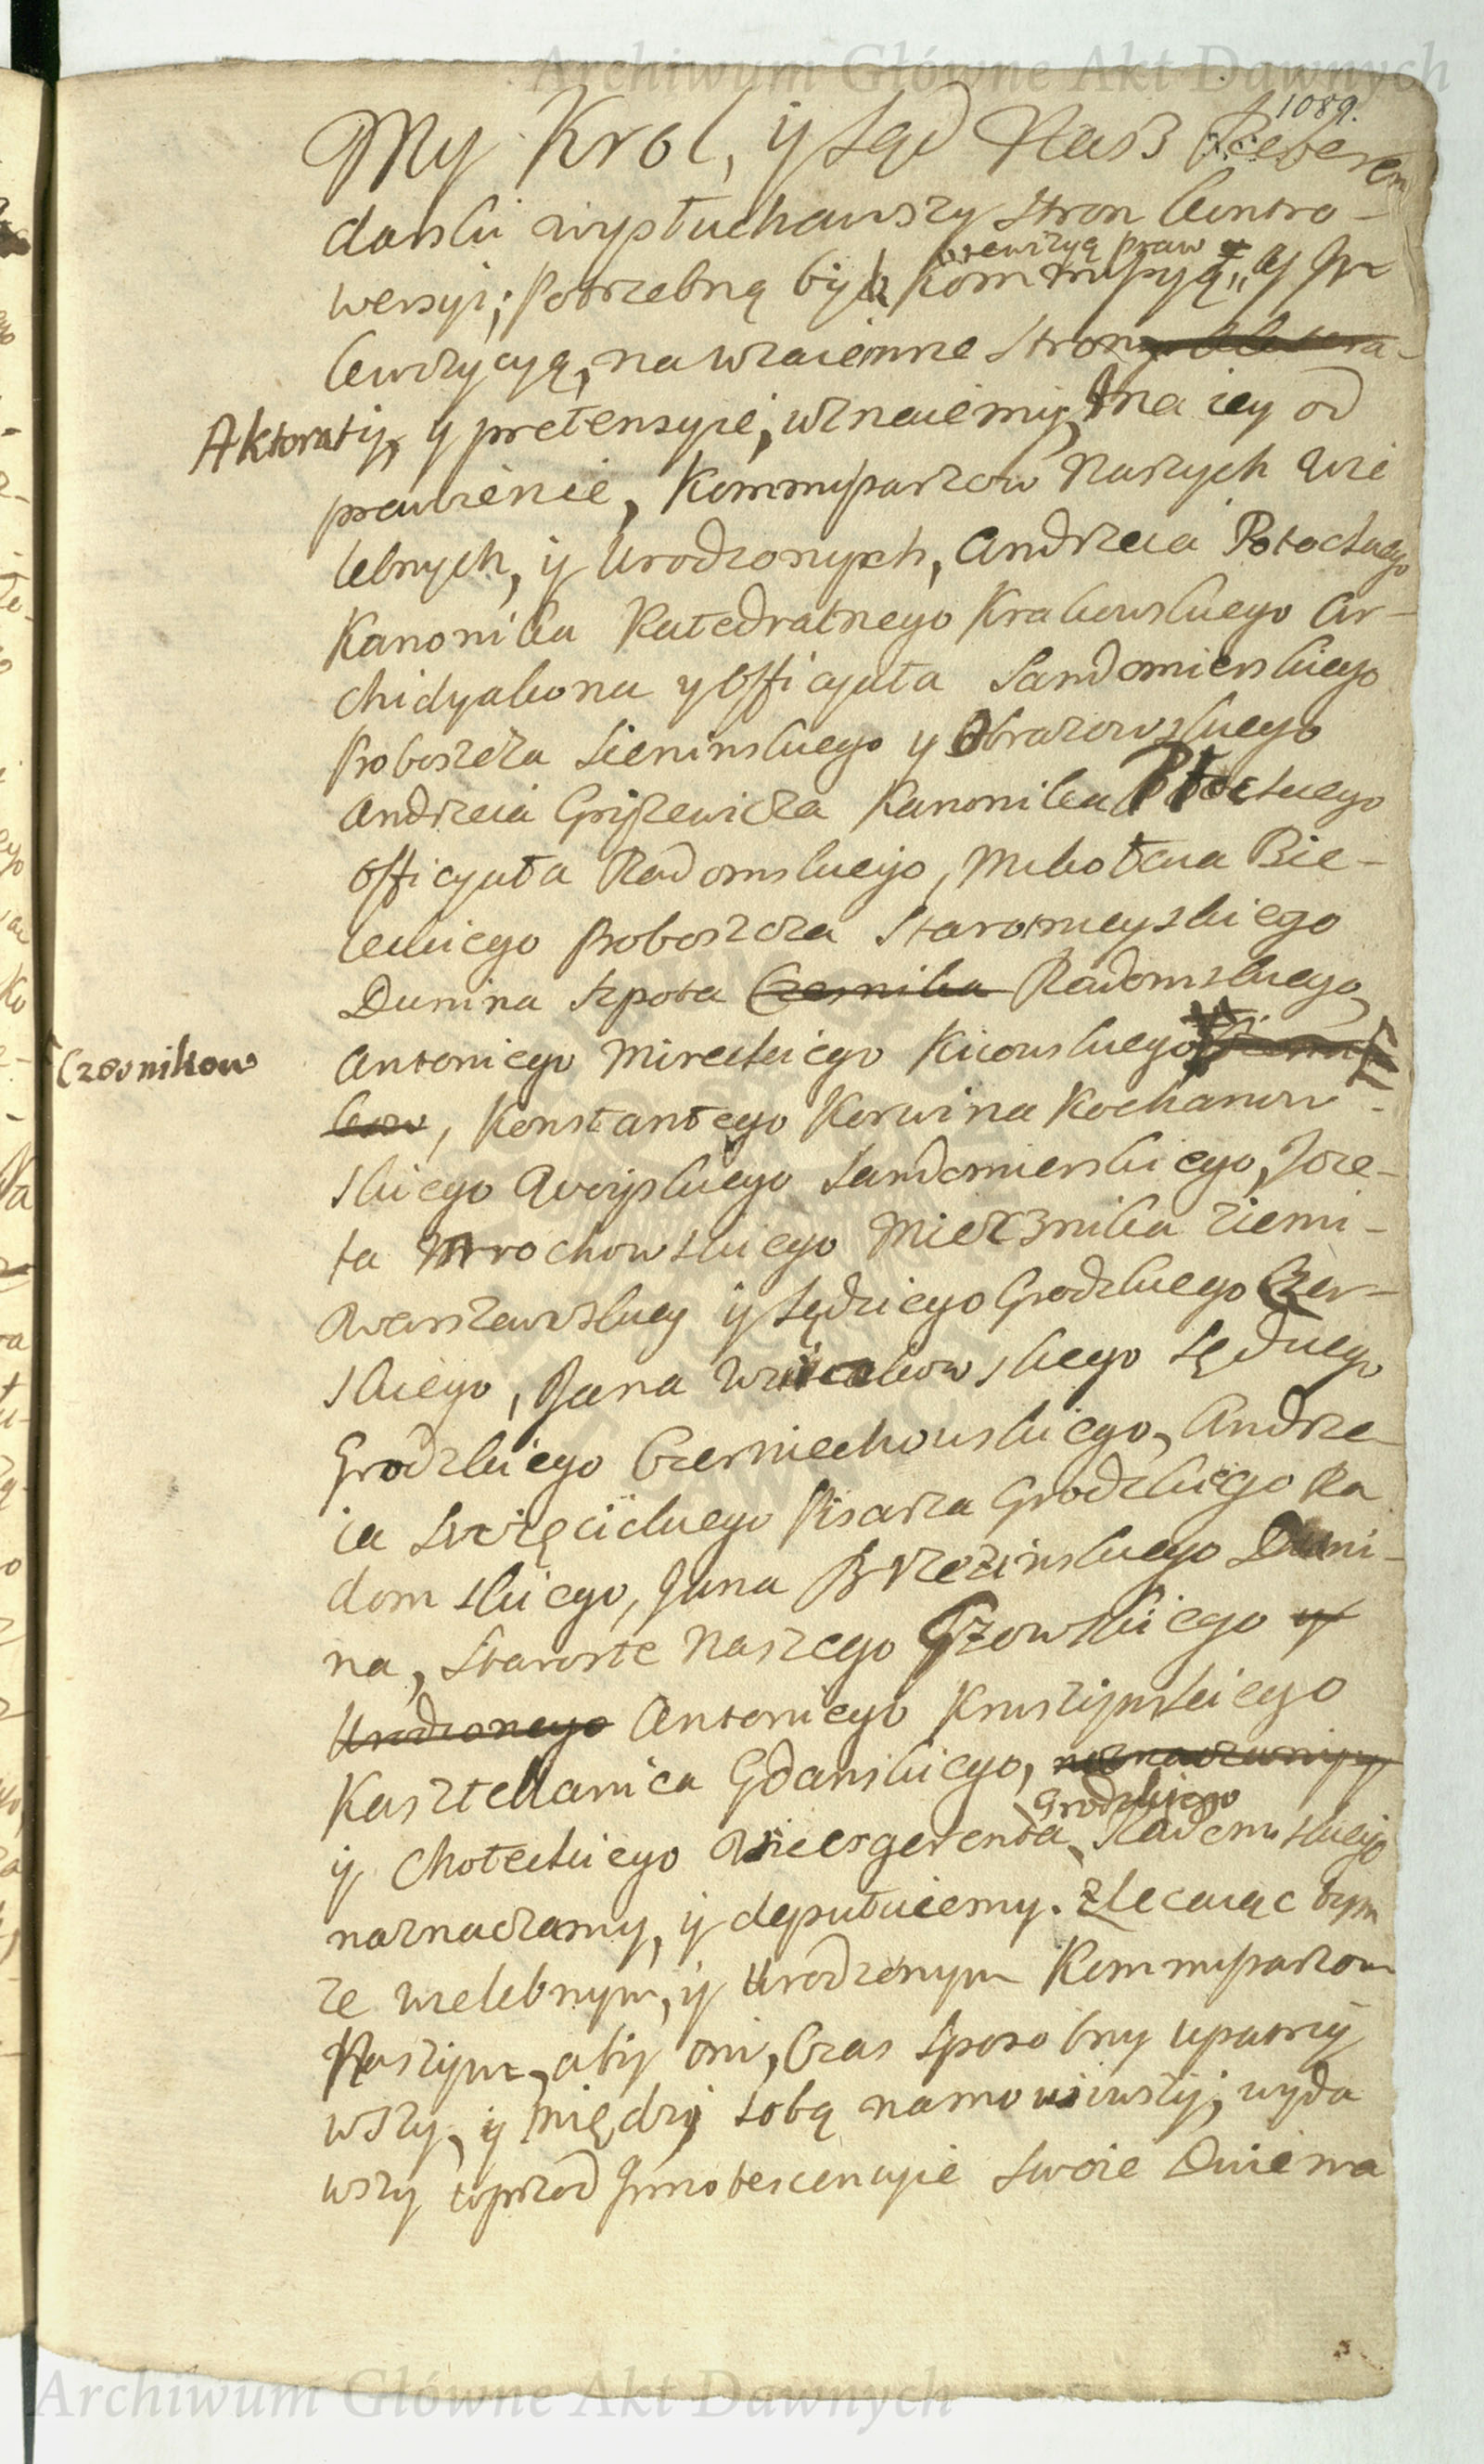 Archiwum Główne Akt Dawnych
1089.
My Krol, y Sąd Nasz Referen
darski wysłuchawszy Stron kontro-
rewizyą praw
wersyi; Potrzebną być Kommissyą, y In
kwizycyą, na wzaiemne Strony
Aktoraty, y pretensyie, uznaiemy, Na iey od
prawienie, Kommissarzow Naszych Wie
lebnych, y Urodzonych, Andrzeia Potockiego
Kanonika Katedralnego Krakowskiego Ar-
chidyakona y Officyała Sandomierskiego
Proboszcza Sieninskiego y Obrazowskiego
Andrzeia Gryszewicza Kanonika Płockiego
Officyała Radomskiego, Mikołaia Bie-
leckiego Proboszcza Staromieyskiego
Dunina Szpota Czesnika Radomskiego,
Czesnikow
Antoniego Mireckiego Kiiowskiego
kow, Konstantego Korwina Kochanow-
skiego Woyskiego Sandomierskiego, Joze-
fa Mrochowskiego Miecznika Ziemi-
Warszawskiey y Sędziego Grodzkiego Czer-
skiego, Jana Sędziego
Grodzkiego Czerniechowskiego, Andrze-
ia Swięcickiego Pisarza Grodzkiego Ra
domskiego, Jana Brzezinskiego Duni-
na, Staroste Naszego Gzowskiego y
Urodzonego Antoniego Kruszynskiego
Kasztellanica Gdanskiego,
Grodzkiego
y Chołeckiego Vicesgerenta Radomskiego
naznaczamy, y deputuiemy. Zlecaiąc tym
ze Wielebnym, y Urodzonym Kommissarzom
Naszym, aby oni, Czas sposobny upatrzy
wszy, y między sobą namowiwszy, wyda
wszy wprzod Innotescencyie swoie Dwiema
Archiwum Główne Akt Dawnych